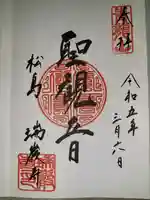 奉拝
令和五年
三月六日
聖観世音
松島
瑞巌寺